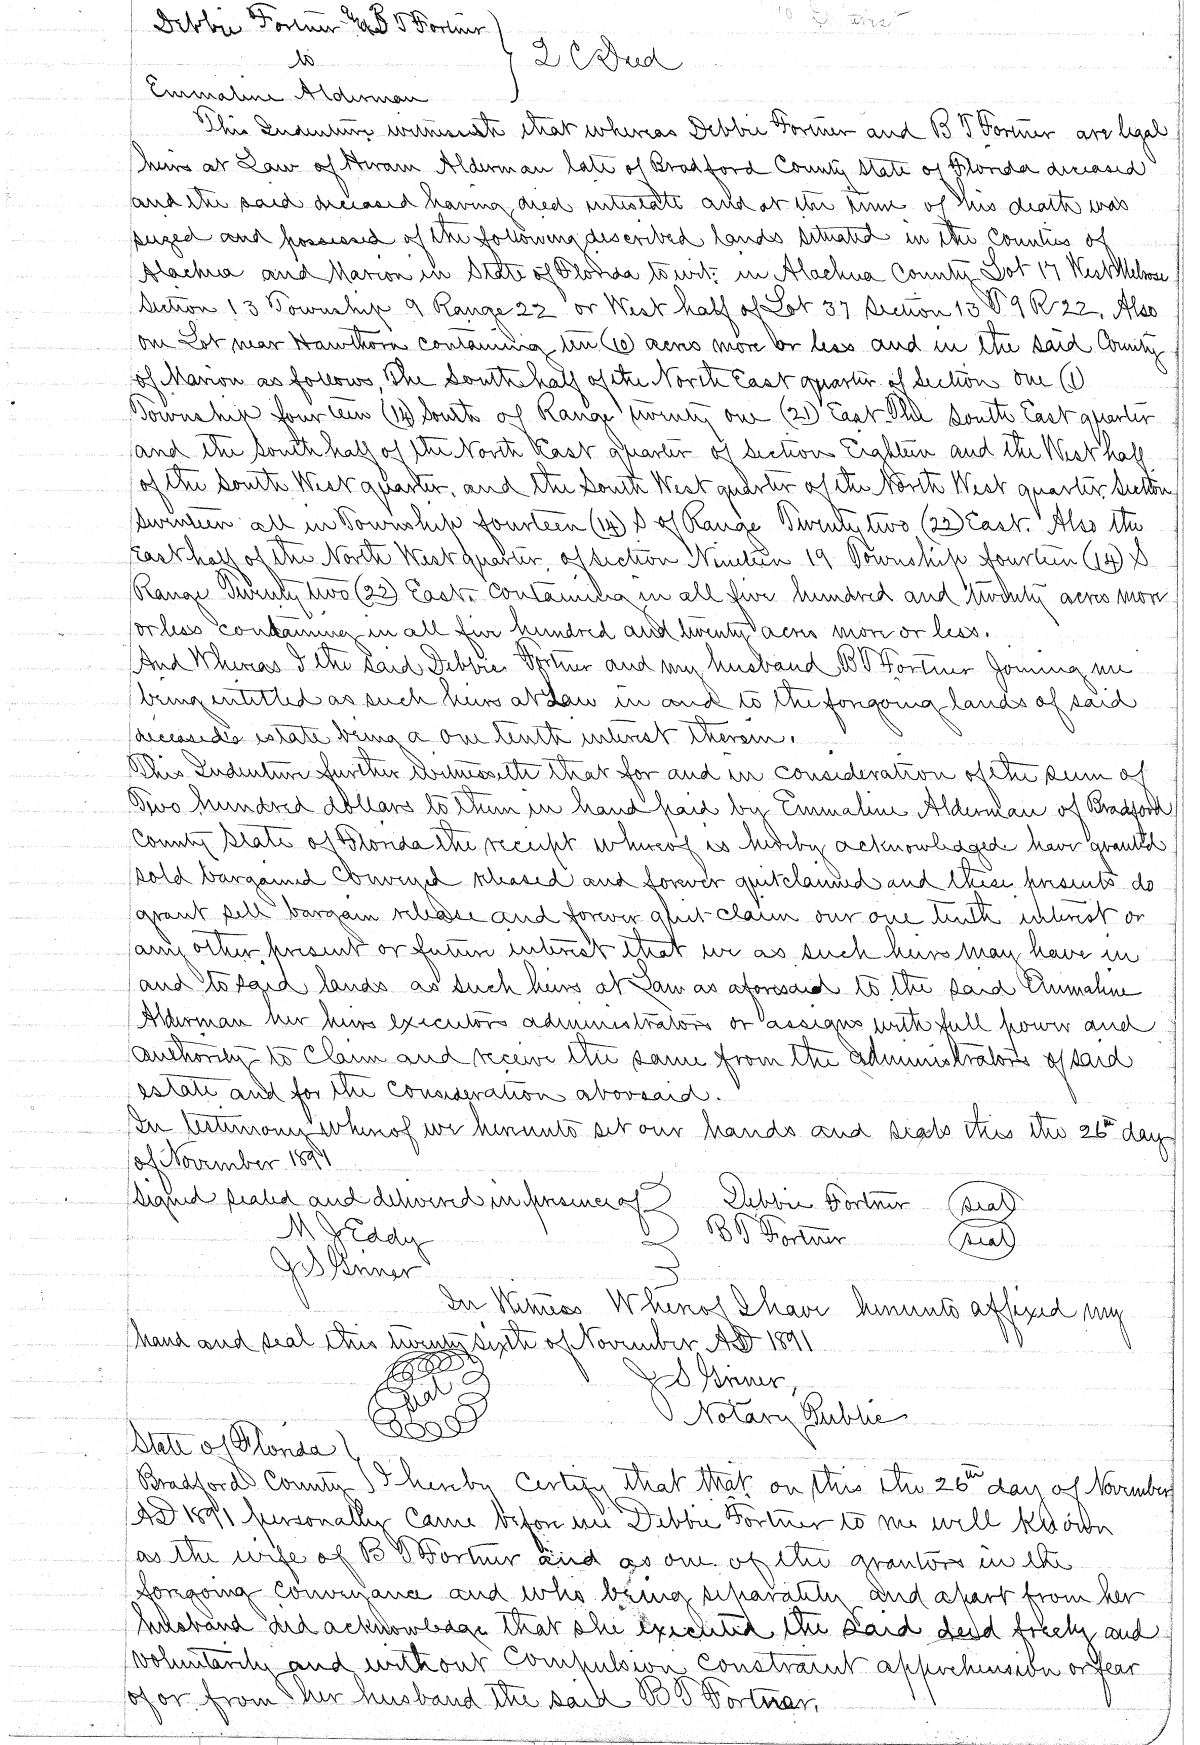 Debbie Fortner & B T Fortner
to
Q C Deed
Emmaline Alderman
This Indenture witnesseth that whereas Debbie Fortner and B T Fortner are legal
heirs at Law of Hiram Alderman late of Bradford County State of Florida deceased
and the said deceased having died intestate and at the time of his death was
seized and possessed of the following described lands situated in the Counties of
Alachua and Marion in State of Florida to wit: in Alachua County Lot 17 West Melrose
Section 13 Township 9 Range 22 or West half of Lot 37 Section 13 T 9 R 22, Also
one Lot near Hawthorn containing ten (10) acres more or less and in the said County
of Marion as follows, The South half of the North East quarter of Section one (1)
Township fourteen (14) South of Range twenty one (21) East The South East quarter
and the South half of the North East quarter of Section Eighteen and the West half
of the South West quarter, and the South West quarter of the North West quarter Section
Seventeen all in Township fourteen (14) S of Range Twenty two (22) East. Also the
East half of the North West quarter, of Section Nineteen 19 Township fourteen (14) S
Range Twenty two (22) East. Containing in all five hundred and twenty acres more
or less containing in all five hundred and twenty acres more or less.
And Whereas I the said Debbie Fortner and my husband B T Fortner Joining me
being entitled as such heirs at Law in and to the forgoing lands of said
deceased's estate being a one tenth interest therein.
This Indenture further Witnesseth that for and in consideration of the sum of
Two hundred dollars to them in hand paid by Emmaline Alderman of Bradford
County State of Florida the receipt whereof is hereby acknowledged have granted
sold bargained Conveyed released and forever quitclaimed and these presents do
grant sell bargain release and forever quit claim our one tenth interest or
any other present or future interest that we as such heirs may have in
and to said lands as such heirs at Law as aforesaid to the said Emmaline
Alderman her heirs executors administrators or assigns with full power and
authority to Claim and receive the same from the administrators of said
estate and for the Consideration abovesaid.
In testimony whereof we hereunto set our hands and seals this the 26th day
of November 1891
Signed sealed and delivered in presence of Debbie Fortner (seal)
M J Eddy B T Fortner (seal)
J S Griner
In Witness Whereof I have hereunto affixed my
hand and seal this twenty sixth of November AD 1891
Seal J S Griner,
Notary Public
State of Florida
Bradford County I hereby Certify that that on this the 26th day of November
AD 1891 personally came before me Debbie Fortner to me well known
as the wife of B T Fortner and as one of the grantors in the
forgoing conveyance and who being separately and apart from her
husband did acknowledge that she executed the said deed freely and
voluntarily and without Compulsion constraint apprehension or fear
of or from her husband the said B T Fortner,